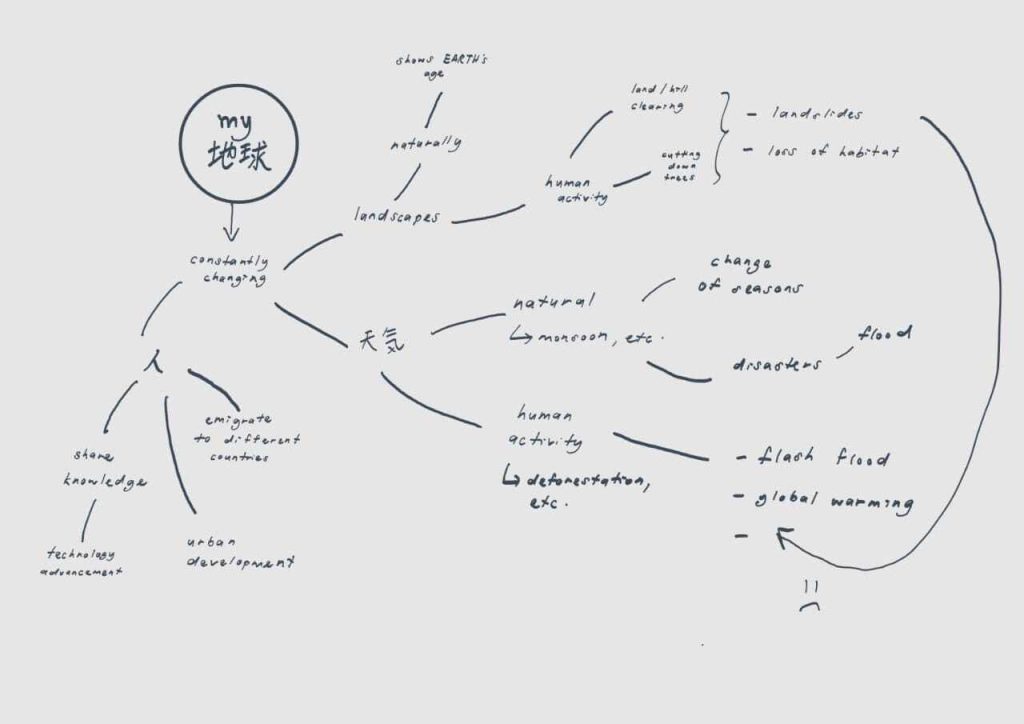 shows EARTH's
age
naturally
landscapes
my
地球
constantly
changing
land/hill
clearing
cutting
down
trees
human
activity
- landslides
- loss of habitat
天気
natural
↳ monsoon, etc.
change
of seasons
disasters
flood
human
activity
↳ deforestation,
etc.
- flash flood
- global warming
-
人
emigrate
to different
countries
share
knowledge
technology
advancement
urban
development